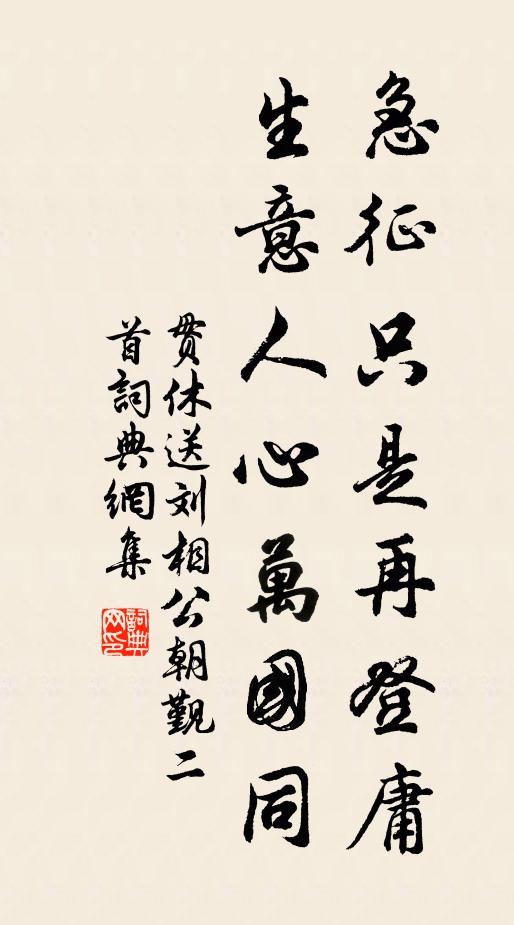 急征只是再登庸
生意人心萬國同
贯休送刘相公朝觐二
首詞典網集
詞典
网印